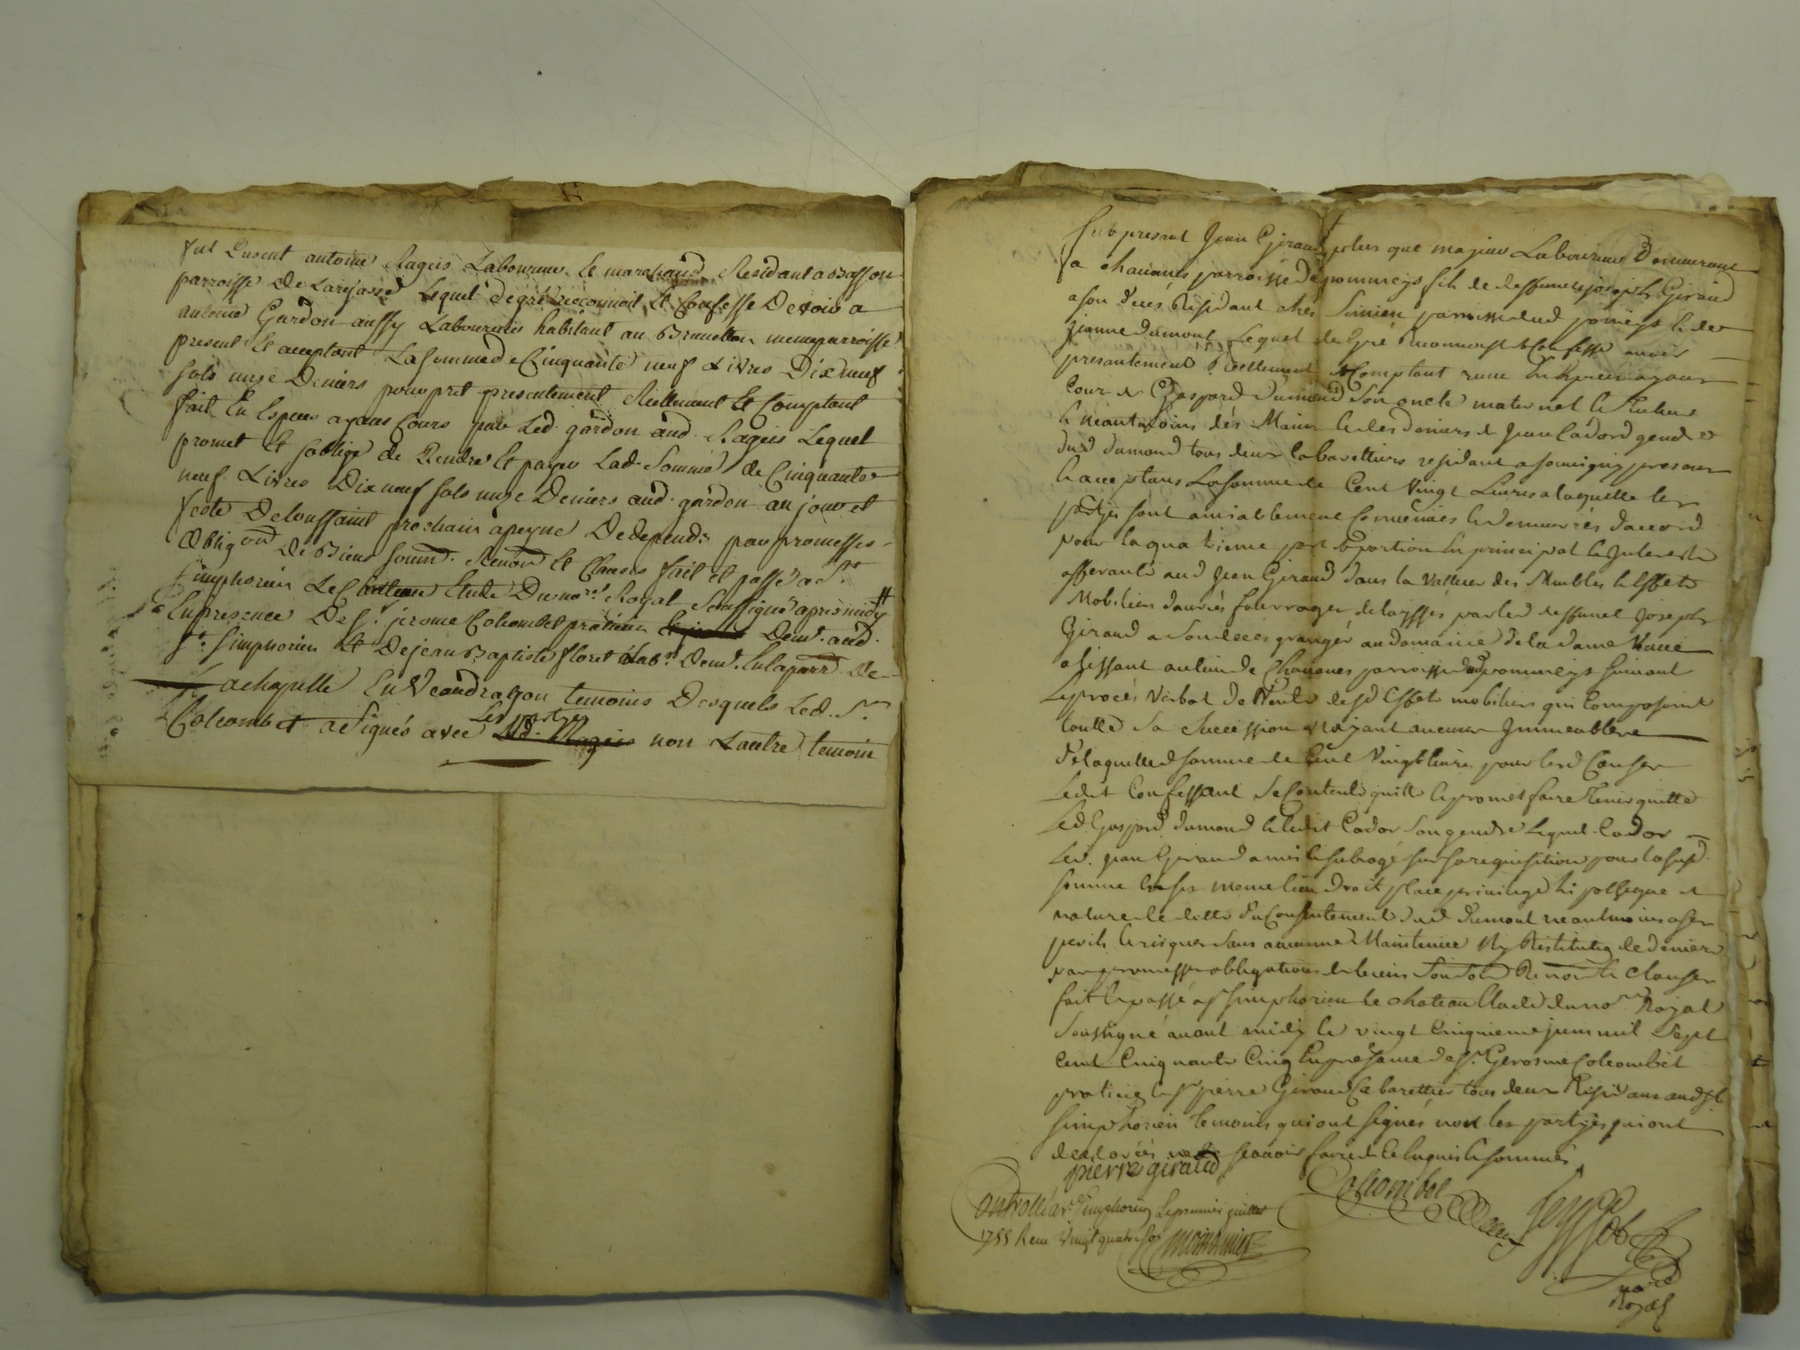 fut Present antoine Rageis Laboureur et marchand Residant a
parroisse de Larajasse Lequel de gré reconnoit et Confesse Devoir a
antoine Gardon aussy Laboureur habitant au memeparroisse
present et acceptant La Somme de Cinquante neuf Livres Dix neuf
sols unze Deniers pour pret presentement Reellement et Comptant
fait En Especes ayant Cours par Led. gardon aud. Rageis Lequel
promet et soblige de Rendre et payer Lad. Somme de Cinquante
neuf Livres Dix neuf sols unze Deniers aud. gardon au jour et
feste De toussaint prochain apeyne De depends par promesses
obligon De Biens soumd. Renond et Clauses fait et passé a St
simphorien Le Chateau Etude Du nore Royal Soussigné apres midy #
En presence De Sr. jerome Colcombet praticien Demt. aud.
St. simphorien Et De jean Baptiste floret Labr. Demt. En la parr. De
Lachapelle En Veandragon temoins Desquels Led. Sr.
Colcombet a Signés avec Led. Rageis non Lautre temoin
fut present Jean Giraud plus que majeur Laboureur Demeurant
a chavanes parroisse de pommeys fils de deffunct joseph Giraud
a son decés Residant parroisse dud pomeys et de
jeanne dumont Lequel de gré reconnoist et Confesse avoir
presantement Reellement et Comptant receu En Especes ayant
Cour de Gaspard dumond Son oncle maternel et tuteur
et neantmoins dés Mains et des deniers de jean Cador gendre
dud dumond tous deux Cabarettiers residant a presans
et acceptans La Somme de Cent Vingt Livres a laquelle les
partyes sont amiablement Convenües et demeurées daccord
pour la quatrieme part et portion En principal et Interests
afferante aud Jean Giraud dans la Valleur des Meubles et Effets
Mobiliers danrés fourrages delaissés par led deffunct Joseph
Giraud a Son deces granger au domaine de la dame
assissant au lieu de Chavanes parroisse dud pommeys Suivant
Le procés Verbal de Vente desd Effets mobiliers qui Composoint
toutte Sa Succession nayant aucuns Immeubles
de laquelle somme de Cent Vingt livres pour lesd Causes
Ledit Confessant Se Contente quitte et promet faire tenir quitte
Led Gaspard dumond et ledit Cador Son gendre Lequel Cador
Led. jean Giraud a mis et subrogé sur Sa requisition pour la susd.
somme En Ses meme lieu droit place privilege hipotheque et
nature de dette du Consentement dud dumont neantmoins a ses
perils et risques Sans aucunne Maintenüe Ny Restitution de deniers
par promesses obligations de biens Renon et clauses
fait et passé a St simphorien le chateau Etude du nore Royal
Soussigné avant midy le vingt Cinquieme juin mil Sept
Cent Cinquante Cinq En presance de Sr. Gerosme Colcombet
praticien et Sr pierre Giraud Cabarettier tous deux Residans aud St.
simphorien temoins qui ont signés non les partyes qui ont
declarés ne Scavoir faire de Ce Enquis et Sommés
pierre giraud
Colcombet
Controllé a St. Simphorien Le premier juillet
1755 Receu Vingt quatre sols
nore
Royal